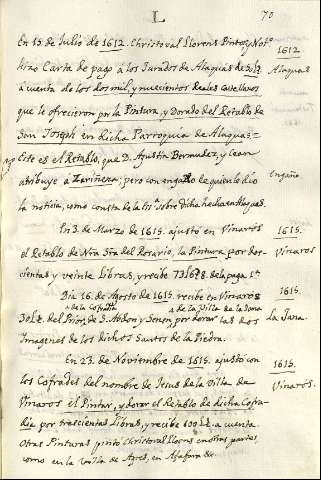 L
70
En 15 de Julio de 1612. Christoval Llorens Pintor, y Not.º
1612
hizo Carta de pago á los Jurados de Alaquas de
Alaquas
á cuenta de los dos mil, y nuecientos Reales Castellanos
que le ofrecieron por la Pintura, y Dorado del Retablo de
San Joseph en dicha Parroquia de Alaquas=
este es el Retablo, que D. Agustin Bermudez, y Cean
atribuye a Zariñena; pero con engaño de quien le dió
Engaño
la noticia, como consta de la sobre dicha hecha en Alaquas.
En 3 de Marzo de 1615. ajustó en Vinaròs
1615.
el Retablo de Nra Sra del Rosario, la Pintura por dos-
Vinaros
cientas y veinte Libras, y recibe de la paga 1ª
Dia 16 de Agosto de 1615. recibe en Vinaros
1615.
de la Cofradia
de la Villa de la Jana
30 L.s del Prior, de S. Abdon y Senen, por dorar las dos
la Jana.
Imagenes de los dichos Santos de la Piedra.
En 23. de Noviembre de 1615. ajustó con
1615.
los Cofrades del nombre de Jesus de la Villa de
Vinaros.
Vinaros el Pintar, y dorar el Retablo de dicha Cofra-
dia por trescientas Libras, y recibe 100 L.s a cuenta.
Otras Pinturas pintó Christoval Llorens en otras partes,
como en la Villa de Ayres, en Alfafara &c.